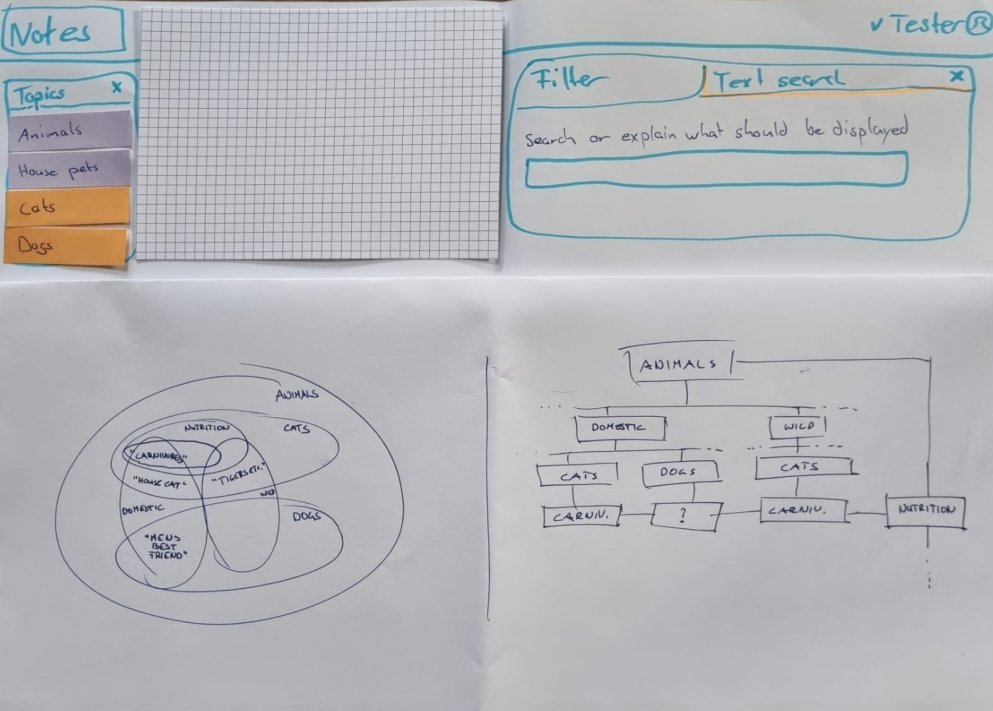 Notes
✓ Tester®
Topics x
Animals
House pets
Cats
Dogs
Filter
Text search x
Search or explain what should be displayed
ANIMALS
NUTRITION
CATS
"CARNIVORES"
"HOUSE CAT"
"TIGERS ETC."
WILD
DOMESTIC
DOGS
"MENS
BEST
FRIEND"
ANIMALS
DOMESTIC
WILD
CATS
DOGS
CATS
CARNIV.
?
CARNIV.
NUTRITION